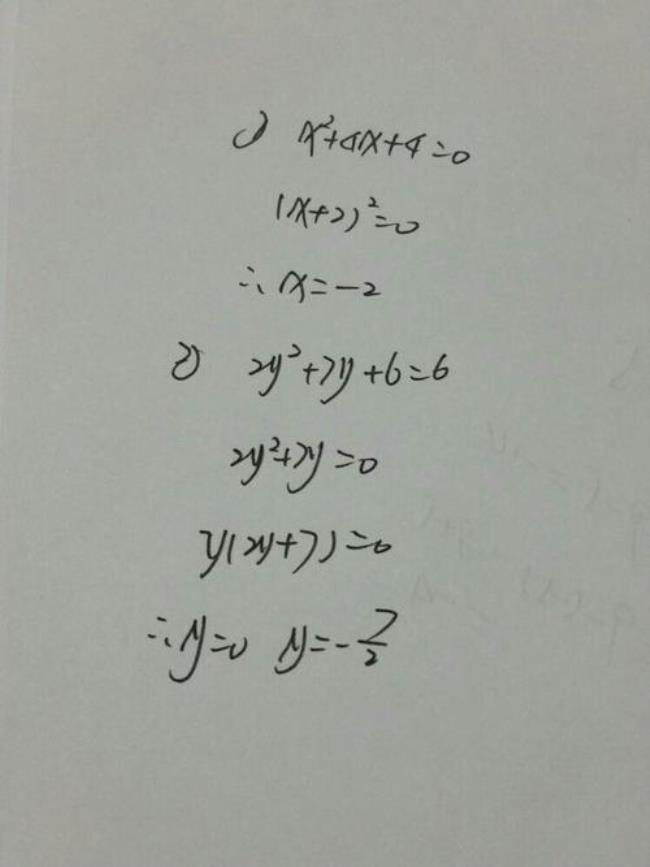 1) x²+4x+4=0
(x+2)²=0
∴ x=-2
2) 2y²+7y+6=6
2y²+7y=0
y(2y+7)=0
∴ y=0 y=-7/2